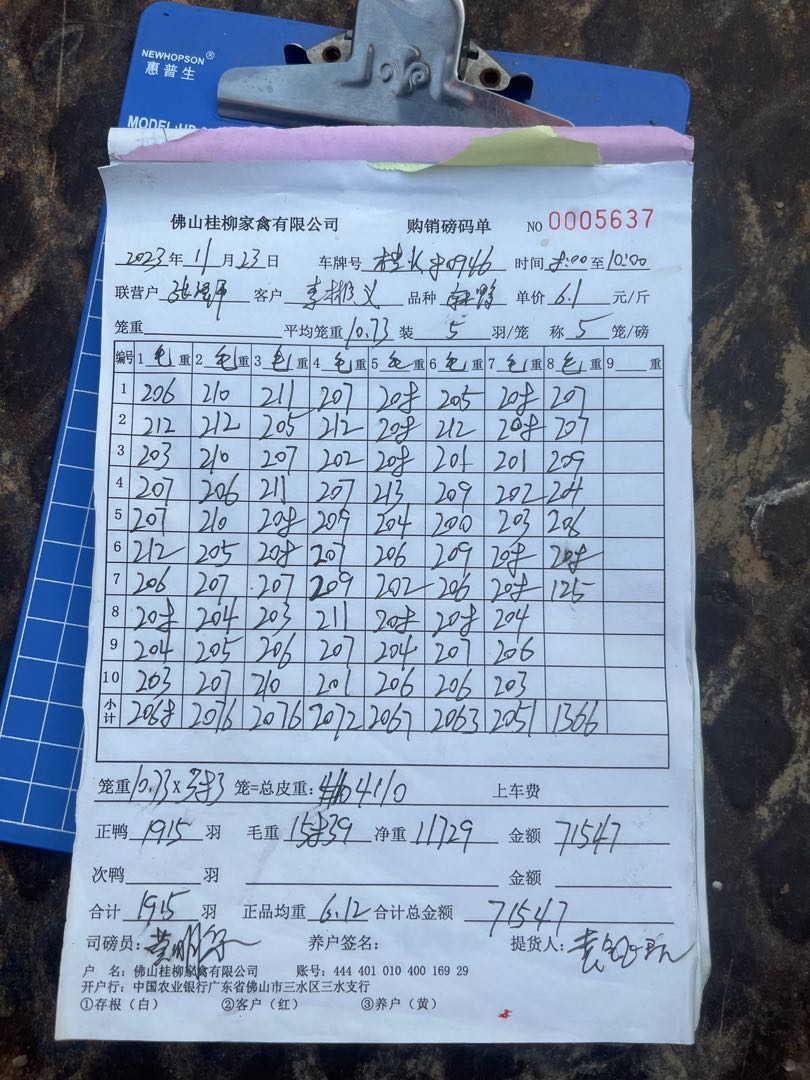 NEWHOPSON®
惠普生
MODEL:HP
佛山桂柳家禽有限公司 购销磅码单 NO 0005637
2023年11月23日 车牌号 桂K80966 时间 8:00至10:00
联营户 客户 李彬义 品种 麻鸭 单价 6.1 元/斤
笼重 平均笼重 10.73 装 5 羽/笼 称 5 笼/磅
编号 1 毛 重 2 毛 重 3 毛 重 4 毛 重 5 毛 重 6 毛 重 7 毛 重 8 毛 重 9 重
1 206 210 211 207 208 205 208 207
2 212 212 205 212 208 212 208 207
3 203 210 207 202 208 201 201 209
4 207 206 211 207 213 209 202 204
5 207 210 208 209 204 200 203 206
6 212 205 208 207 206 209 208 208
7 206 207 207 209 202 206 208 125
8 208 204 203 211 208 208 204
9 204 205 206 207 204 207 206
10 203 207 210 201 206 206 203
小计 2068 2076 2076 2072 2067 2063 2051 1366
笼重 10.73 X 383 笼=总皮重: 4110 上车费
正鸭 1915 羽 毛重 15839 净重 11729 金额 71547
次鸭 羽 金额
合计 1915 羽 正品均重 6.12 合计总金额 71547
司磅员: 养户签名: 提货人:
户 名: 佛山桂柳家禽有限公司 账号: 444 401 010 400 169 29
开户行: 中国农业银行广东省佛山市三水区三水支行
①存根（白） ②客户（红） ③养户（黄）